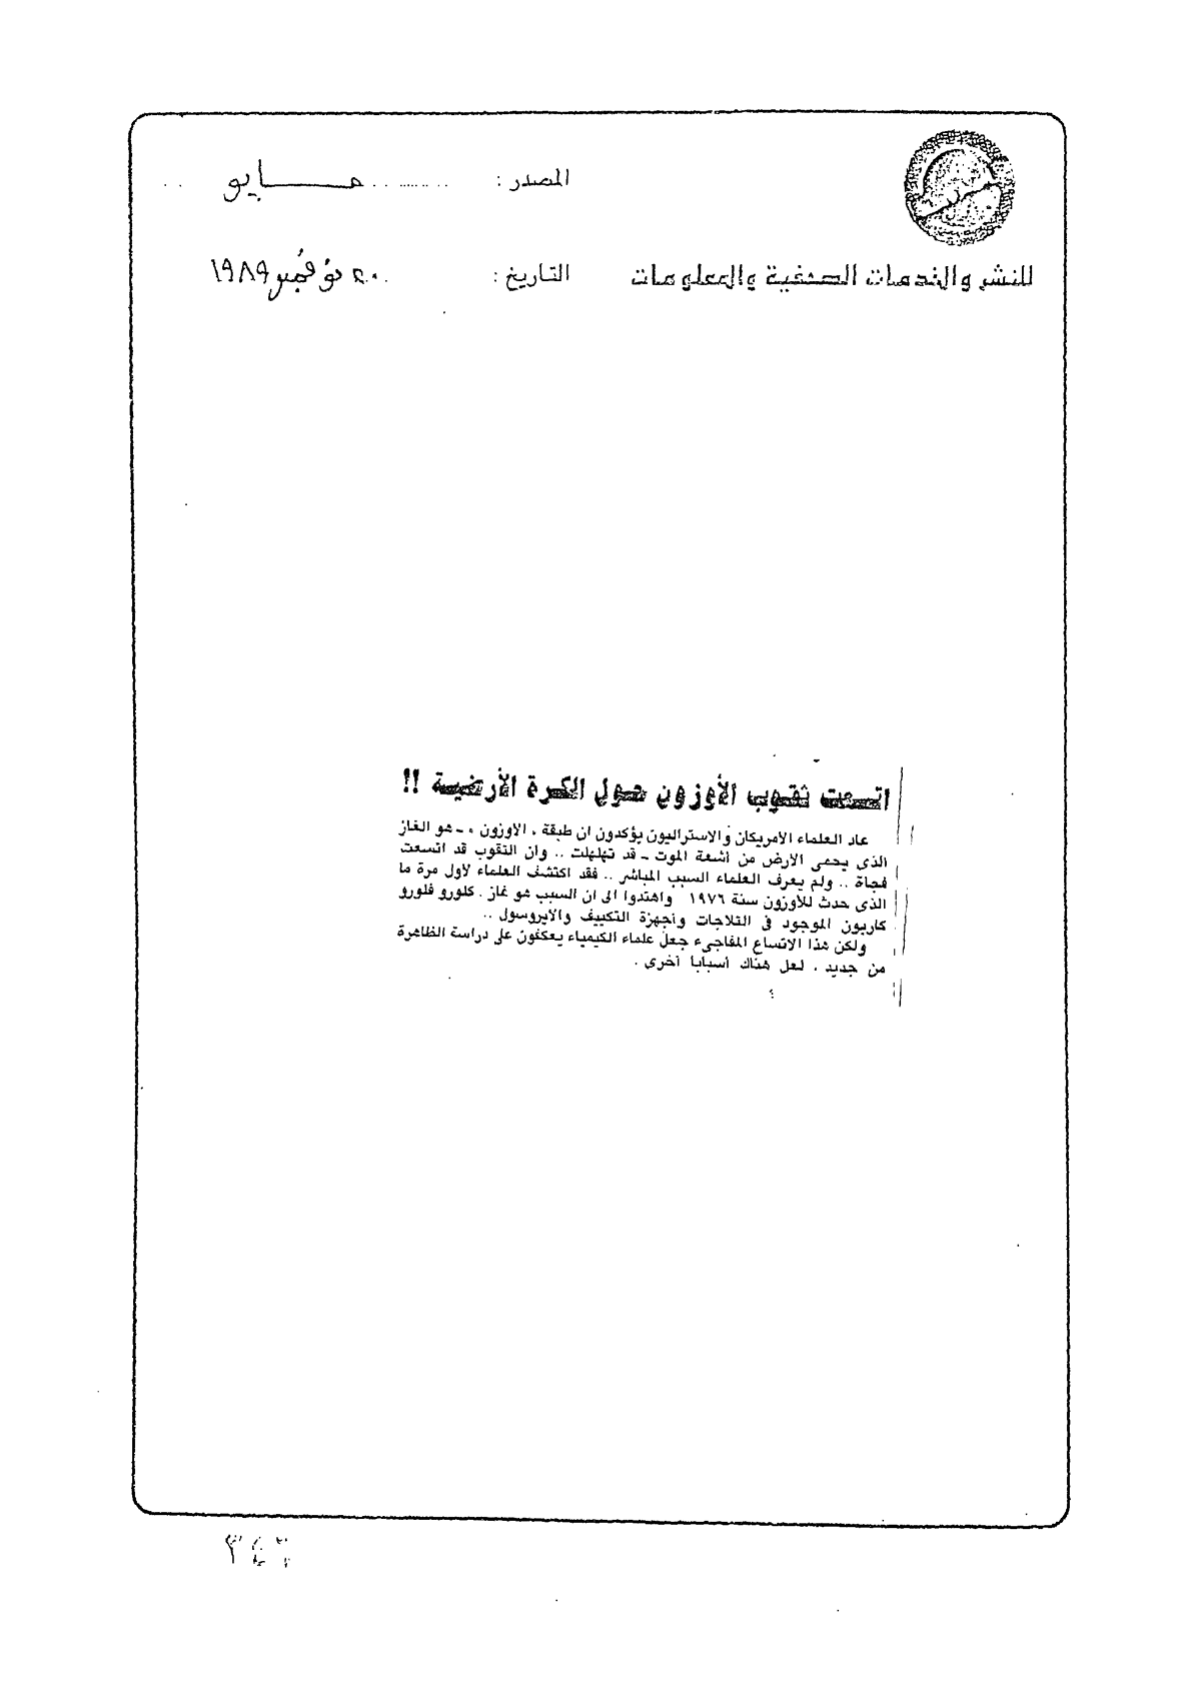 المصدر : مايو
للنشر والخدمات الصحفية والمعلومات
التاريخ : ٢٠ نوفمبر ١٩٨٩
اتسعت ثقوب الأوزون حول الكرة الأرضية !!
عاد العلماء الأمريكان والاستراليون يؤكدون ان طبقة ، الأوزون ، ـ هو الغاز
الذى يحمى الارض من أشعة الموت ـ قد تهلهلت .. وان الثقوب قد اتسعت
فجأة .. ولم يعرف العلماء السبب المباشر .. فقد اكتشف العلماء لأول مرة ما
الذى حدث للأوزون سنة ١٩٧٦ واهتدوا الى ان السبب هو غاز . كلورو فلورو
كاربون الموجود فى الثلاجات وأجهزة التكييف والايروسول ..
ولكن هذا الاتساع المفاجىء جعل علماء الكيمياء يعكفون على دراسة الظاهرة
من جديد . لعل هناك أسبابا أخرى .